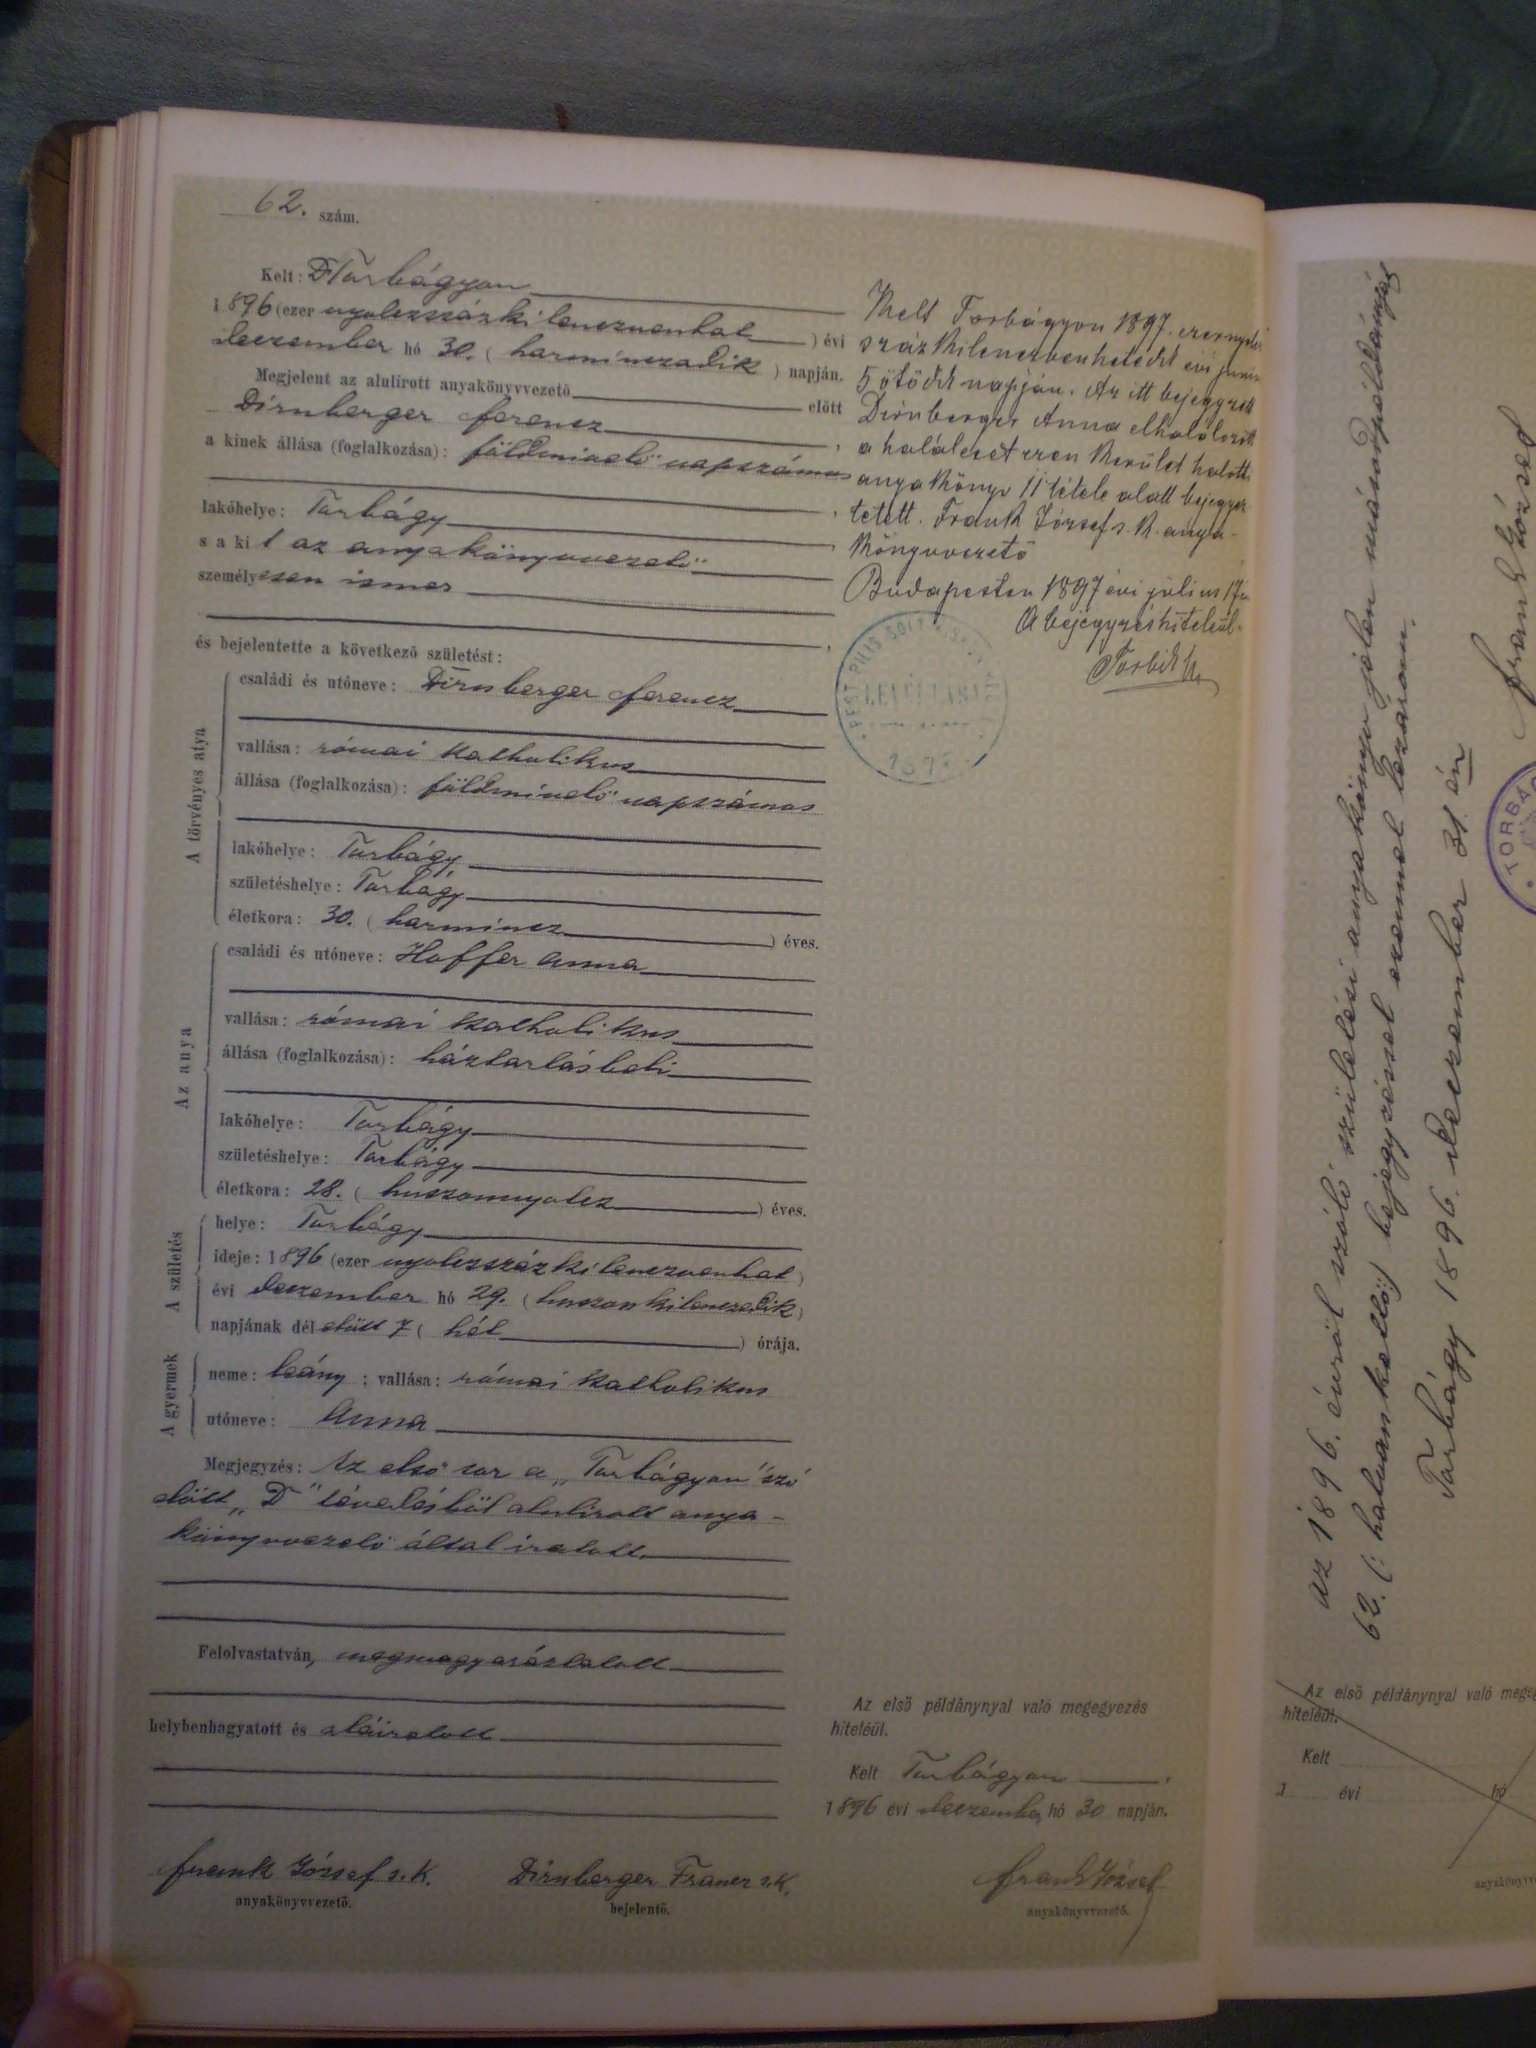 62. szám.
Kelt: D Torbágyon
1896 (ezer nyolczszázkilenczvenhat ) évi
deczember hó 30. ( harminczadik ) napján.
Megjelent az alulirott anyakönyvvezető előtt
Dirnberger Ferencz ,
a kinek állása (foglalkozása): földmívelő napszámos
,
lakóhelye: Torbágy ,
s a kit az anyakönyvvezető
személyesen ismer
,
és bejelentette a következő születést:
A törvényes atya
családi és utóneve: Dirnberger Ferencz
vallása: római katholikus
állása (foglalkozása): földmívelő napszámos
lakóhelye: Torbágy
születéshelye: Torbágy
életkora: 30. ( harmincz ) éves.
Az anya
családi és utóneve: Hoffer Anna
vallása: római katholikus
állása (foglalkozása): háztartásbeli
lakóhelye: Torbágy
születéshelye: Torbágy
életkora: 28. ( huszonnyolcz ) éves.
A születés
helye: Torbágy
ideje: 1896 (ezer nyolczszázkilenczvenhat )
évi deczember hó 29. ( huszonkilenczedik )
napjának délelőtt 7 ( hét ) órája.
A gyermek
neme: leány ; vallása: római katholikus
utóneve: Anna
Megjegyzés: Az első sor a „Torbágyon" szó
előtt „D" tévedésből alulirott anya-
könyvvezető által iratott.
Felolvastatván, megmagyaráztatott
helybenhagyatott és aláiratott
Frank József s. k.
anyakönyvvezető.
Dirnberger Francz s. k.
bejelentő.
Kelt Torbágyon 1897. ezernyolcz
százkilenczvenhetedik évi junius
5 ötödik napján. Az itt bejegyzett
Dirnberger Anna elhalálozott
a haláleset ezen kerület halotti
anyakönyv 11 tétele alatt bejegyez
tetett. Frank József s. k. anya-
könyvvezető
Budapesten 1897 évi július 17én
A bejegyzés hiteleül.
PEST PILIS SOLT KISKUN
LEVÉLTÁRA
Az első példánynyal való megegyezés
hiteléül.
Kelt Torbágyon ,
1896 évi deczember hó 30 napján.
Frank József
anyakönyvvezető.
Az 1896. évről szóló születési anyakönyv jelen másodpéldányát
62. (: hatvankettő :) bejegyzéssel ezennel lezárom.
Torbágy 1896. deczember 31.én
Frank József
TORBÁ
Az első példánynyal való mege
hiteléül.
Kelt
1 évi hó
anyakönyvv